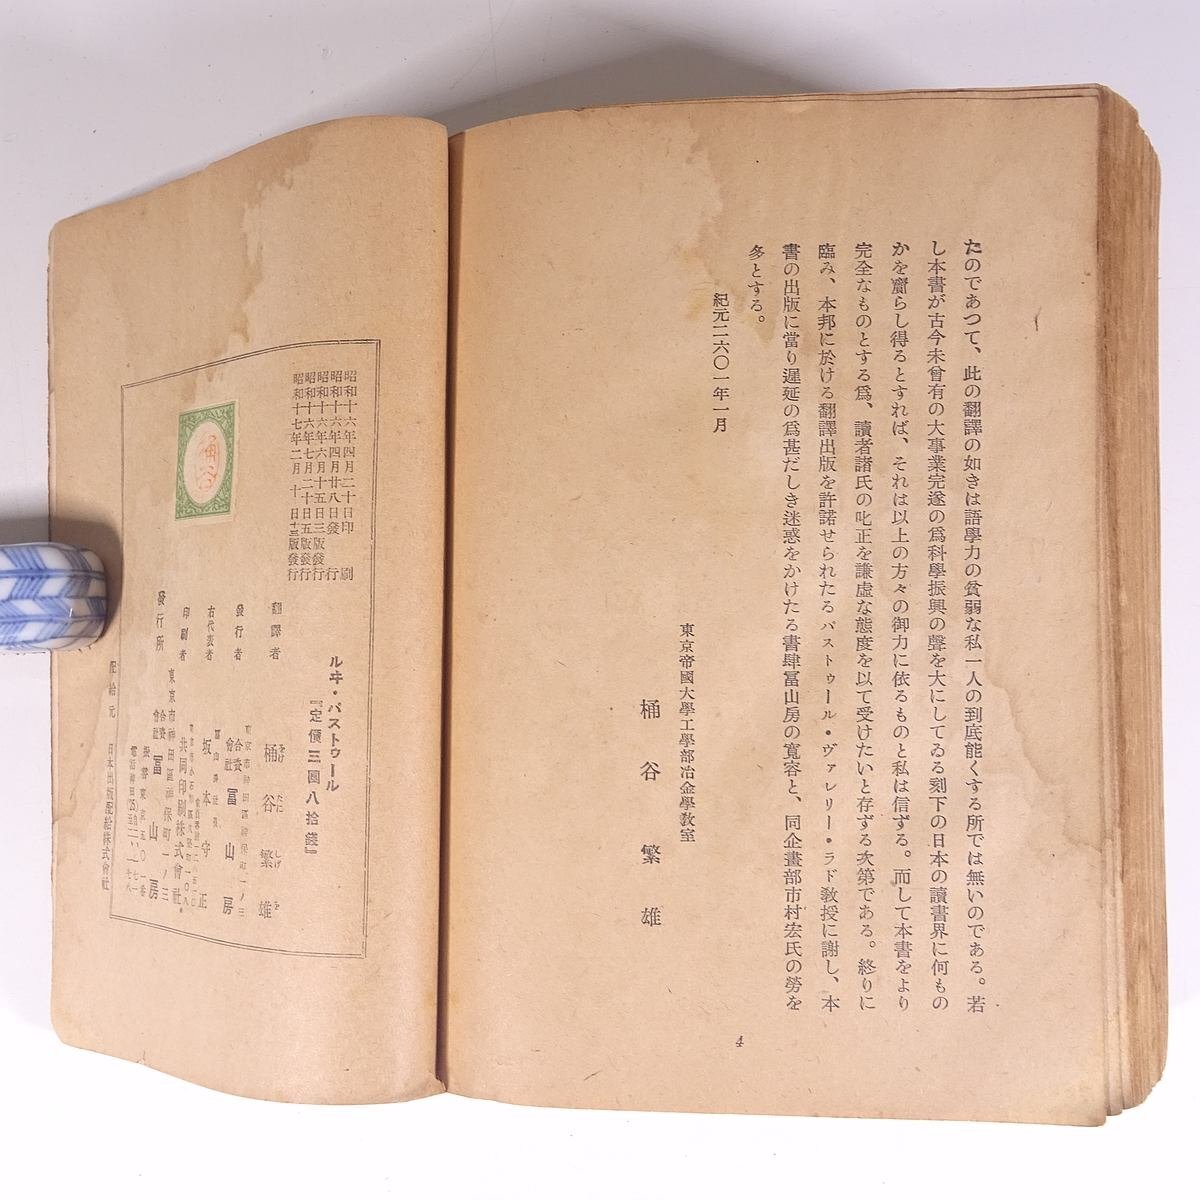 たのであつて、此の翻譯の如きは語學力の貧弱な私一人の到底能くする所では無いのである。若
し本書が古今未曾有の大事業完遂の爲科學振興の聲を大にしてゐる刻下の日本の讀書界に何もの
かを齎らし得るとすれば、それは以上の方々の御力に依るものと私は信ずる。而して本書をより
完全なものとする爲、讀者諸氏の叱正を謙虛な態度を以て受けたいと存ずる次第である。終りに
臨み、本邦に於ける翻譯出版を許諾せられたるパストゥール・ヴァレリー・ラド敎授に謝し、本
書の出版に當り遲延の爲甚だしき迷惑をかけたる書肆冨山房の寬容と、同企畫部市村宏氏の勞を
多とする。
紀元二六〇一年一月
東京帝國大學工學部冶金學敎室
桶谷繁雄
4
昭和十六年四月二十日印刷
昭和十六年四月廿八日發行
昭和十六年六月十五日三版發行
昭和十六年七月二十日五版發行
昭和十七年二月十日十三版發行
ルヰ・パストゥール
『定價三圓八拾錢』
翻譯者 桶谷繁雄
をけ たに しげ を
東京市神田區神保町一ノ三
發行者 合資會社 冨山房
右代表者 坂本守正
印刷者 共同印刷株式會社
東京市神田區神保町一ノ三
發行所 合資會社 冨山房
振替東京五〇一番
配給元 日本出版配給株式會社